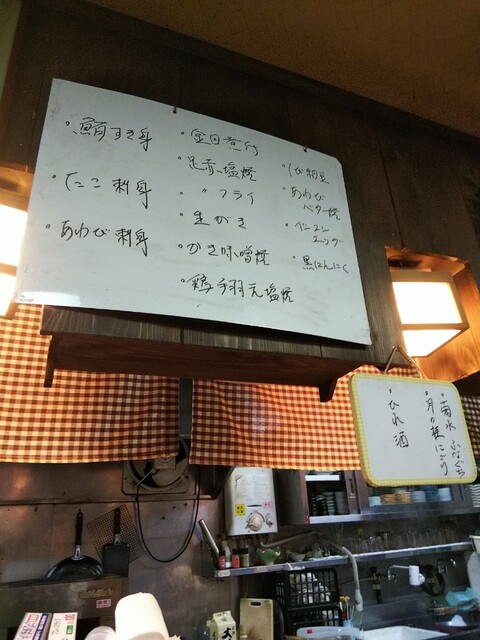 ・鮪すき身
・たこ刺身
・あわび刺身
・金目煮付
・足赤塩焼
・〃フライ
・生がき
・かき味噌焼
・鶏手羽元塩焼
・あわび
バター焼
・ベーコン
エッグ
・黒にんにく
・菊水ふなぐち
・月の桂にごり
・ひれ酒